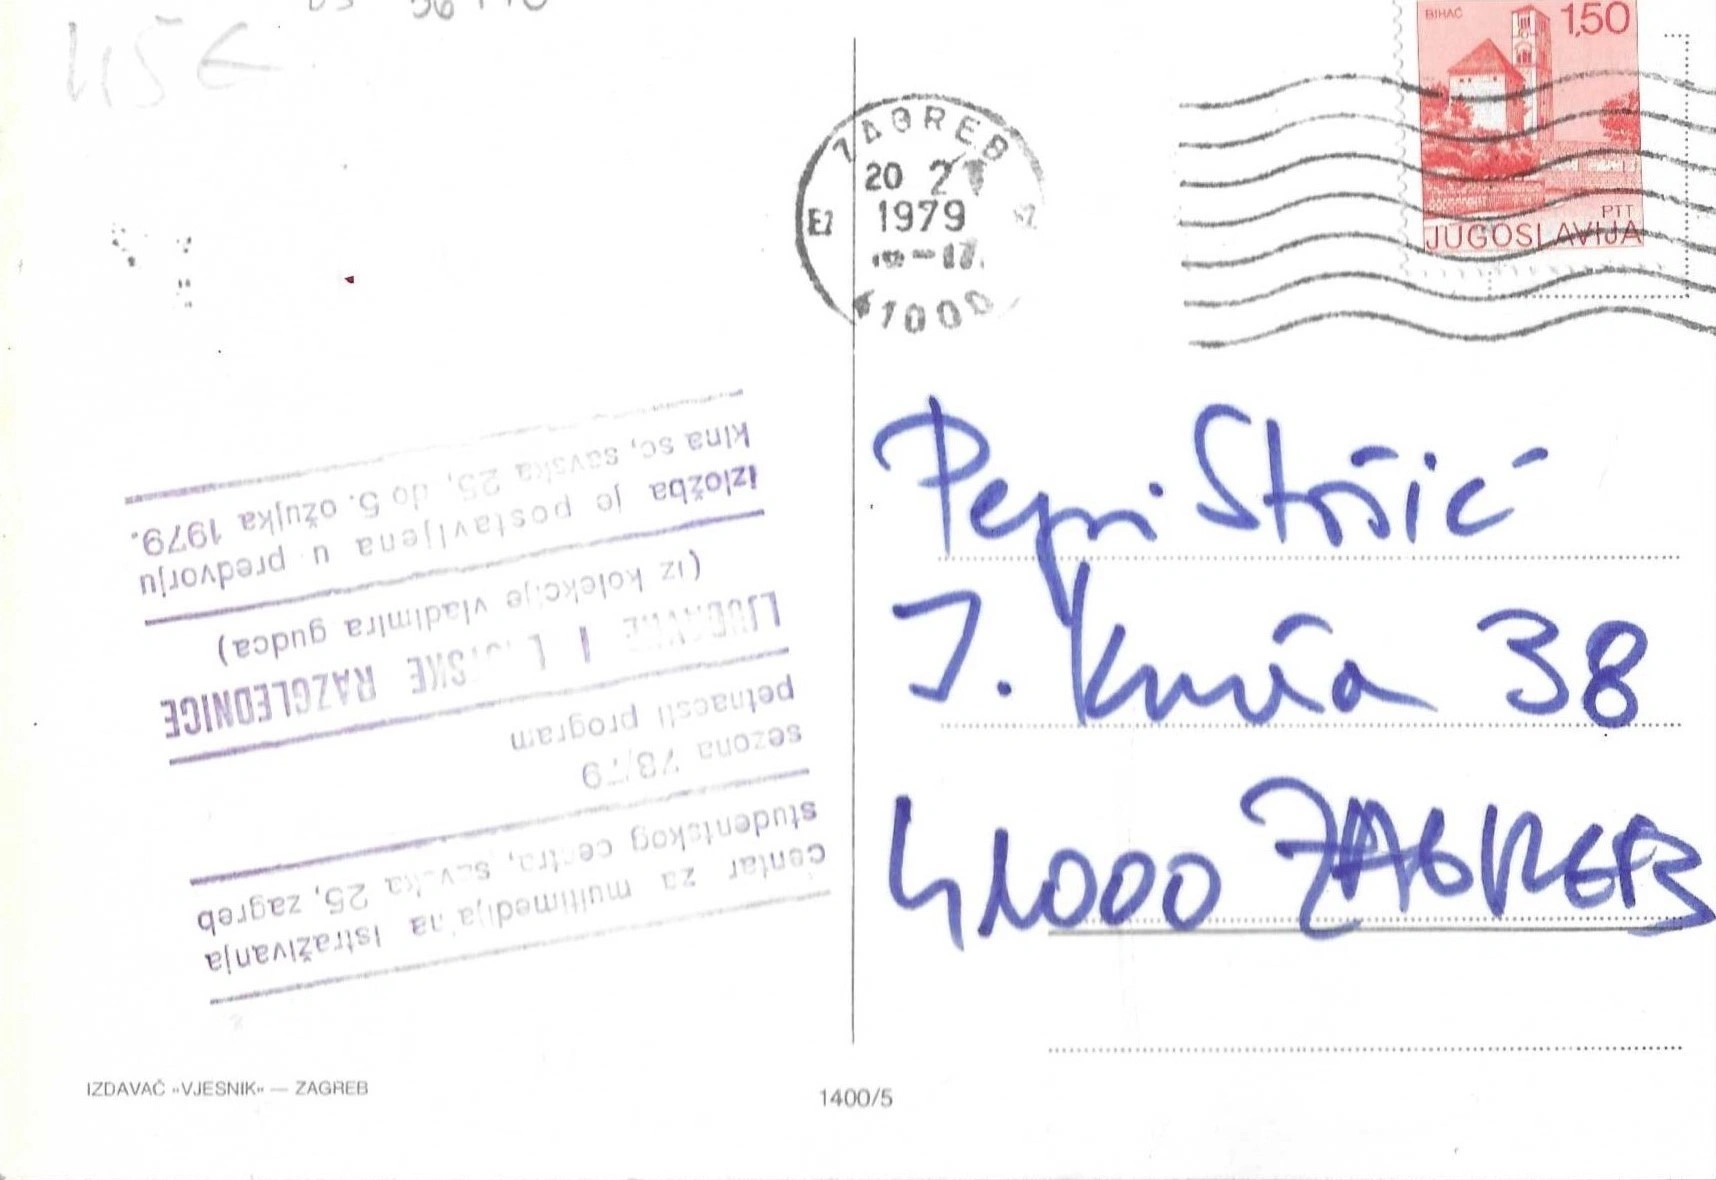 BIHAĆ
1,50
PTT
JUGOSLAVIJA
ZAGREB
20 2
1979
41000
centar za multimedijalna istraživanja
studentskog centra, savska 25, zagreb
sezona 78/79
petnaesti program
LJUBAVNE I RAZGLEDNICE
(iz kolekcije vladimira gudca)
izložba je postavljena u predvorju
kina sc, savska 25, do 5. ožujka 1979.
Pepi
38
41000 ZAGREB
IZDAVAČ »VJESNIK« — ZAGREB
1400/5